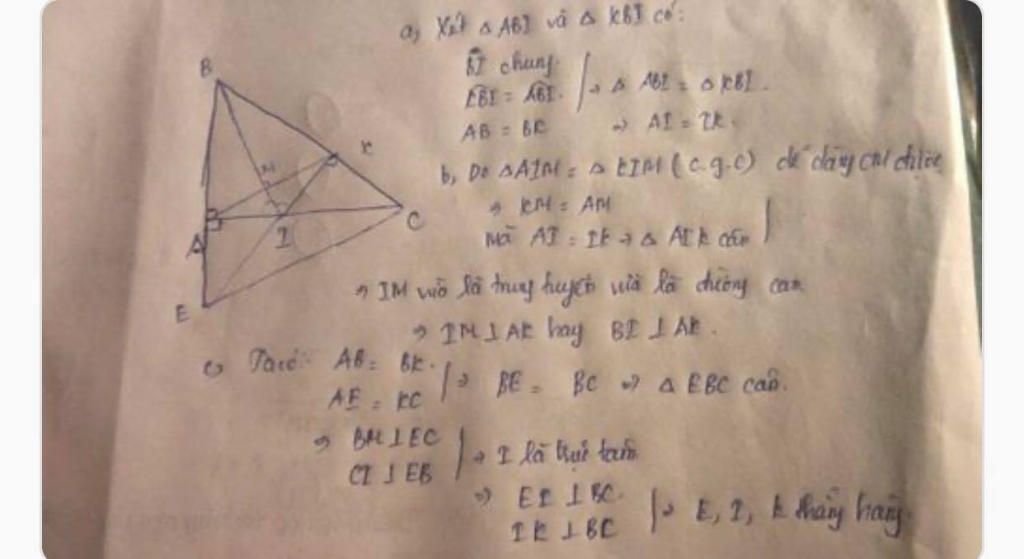 a, Xét △ ABI và △ KBI có:
BI chung.
KBI = ABI. → △ ABI = △ KBI.
AB = BK ⇒ AI = IK.
b, Do △AIM = △ KIM (c.g.c) dễ dàng CM được
⇒ KM = AM
Mà AI = IK → △ AIK cân
⇒ IM vừa là trung tuyến vừa là đường cao
⇒ IM ⊥ AK hay BI ⊥ AK.
c, Ta có: AB = BK.
AE = KC ⇒ BE = BC ⇒ △ EBC cân.
⇒ BM ⊥ EC
CI ⊥ EB → I là trực tâm
⇒ EI ⊥ BC.
IK ⊥ BC ⇒ E, I, K thẳng hàng.
B
K
M
C
A
I
E